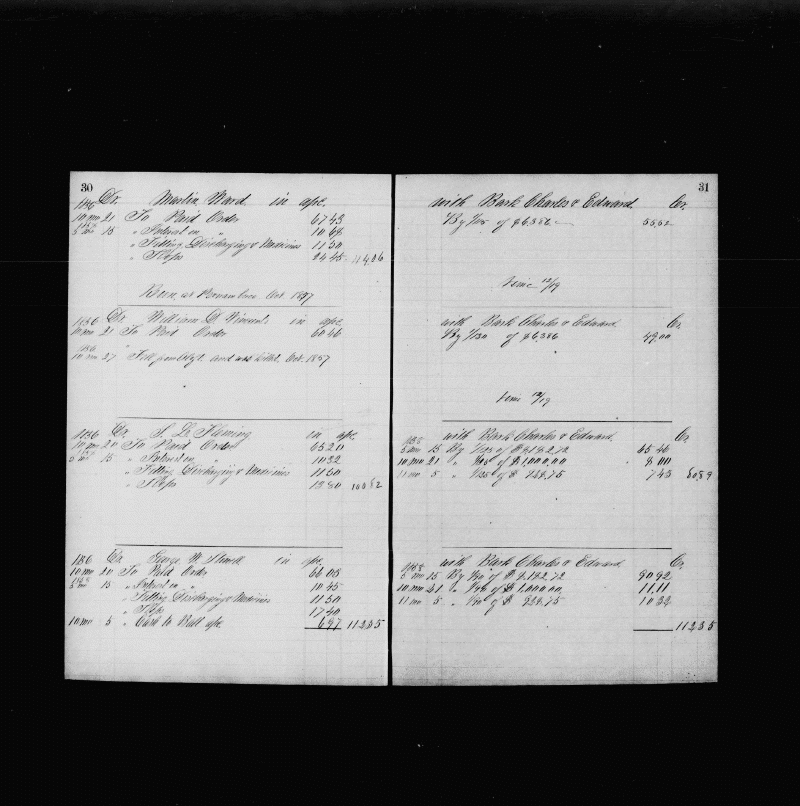 30
Dr. Martin Ward in a/c.
10 mo 21 To Paid Order 67 43
5 mo 15 " Interest on " 10 68
" Fitting, Discharging & Medicines 11 50
" Slops 24 45
at Pernambuco Oct. 1857
1856 Dr. William D. Vincent in a/c.
10 mo 21 To Paid Order 60 46
10 mo 27 " Fell from and was killed, Oct. 1857
1856 Dr. S. L. Fleming in a/c.
10 mo 20 To Paid Order 65 20
5 mo 15 " Interest on " 10 32
" Fitting Discharging & Medicines 11 50
" Slops
Dr. George W. in a/c.
10 mo 20 To Paid Order 66 08
5 mo 15 " Interest on " 10 45
" Fitting Discharging & Medicines 11 50
" Slops 17 40
10 mo 5 " Cash to Ball a/c 6 97 112 35
31
with Bark Charles & Edward. Cr.
By of $6,386 55 52
12/19
with Bark Charles & Edward Cr.
By 1/130 of $6,386 49 00
12/19
with Bark Charles & Edward. Cr.
5 mo 15 By of $8,182.72 65 46
10 mo 21 " of $1,000.00 8 00
11 mo 5 " of $ 928.75 7 43 80 89
1858 with Bark Charles & Edward. Cr.
5 mo 15 By 1/90 of $8,182.72 90 92
10 mo 21 " 1/90 of $1,000.00 11,11
11 mo 5 " 1/90 of $ 928.75 10 32
112 35